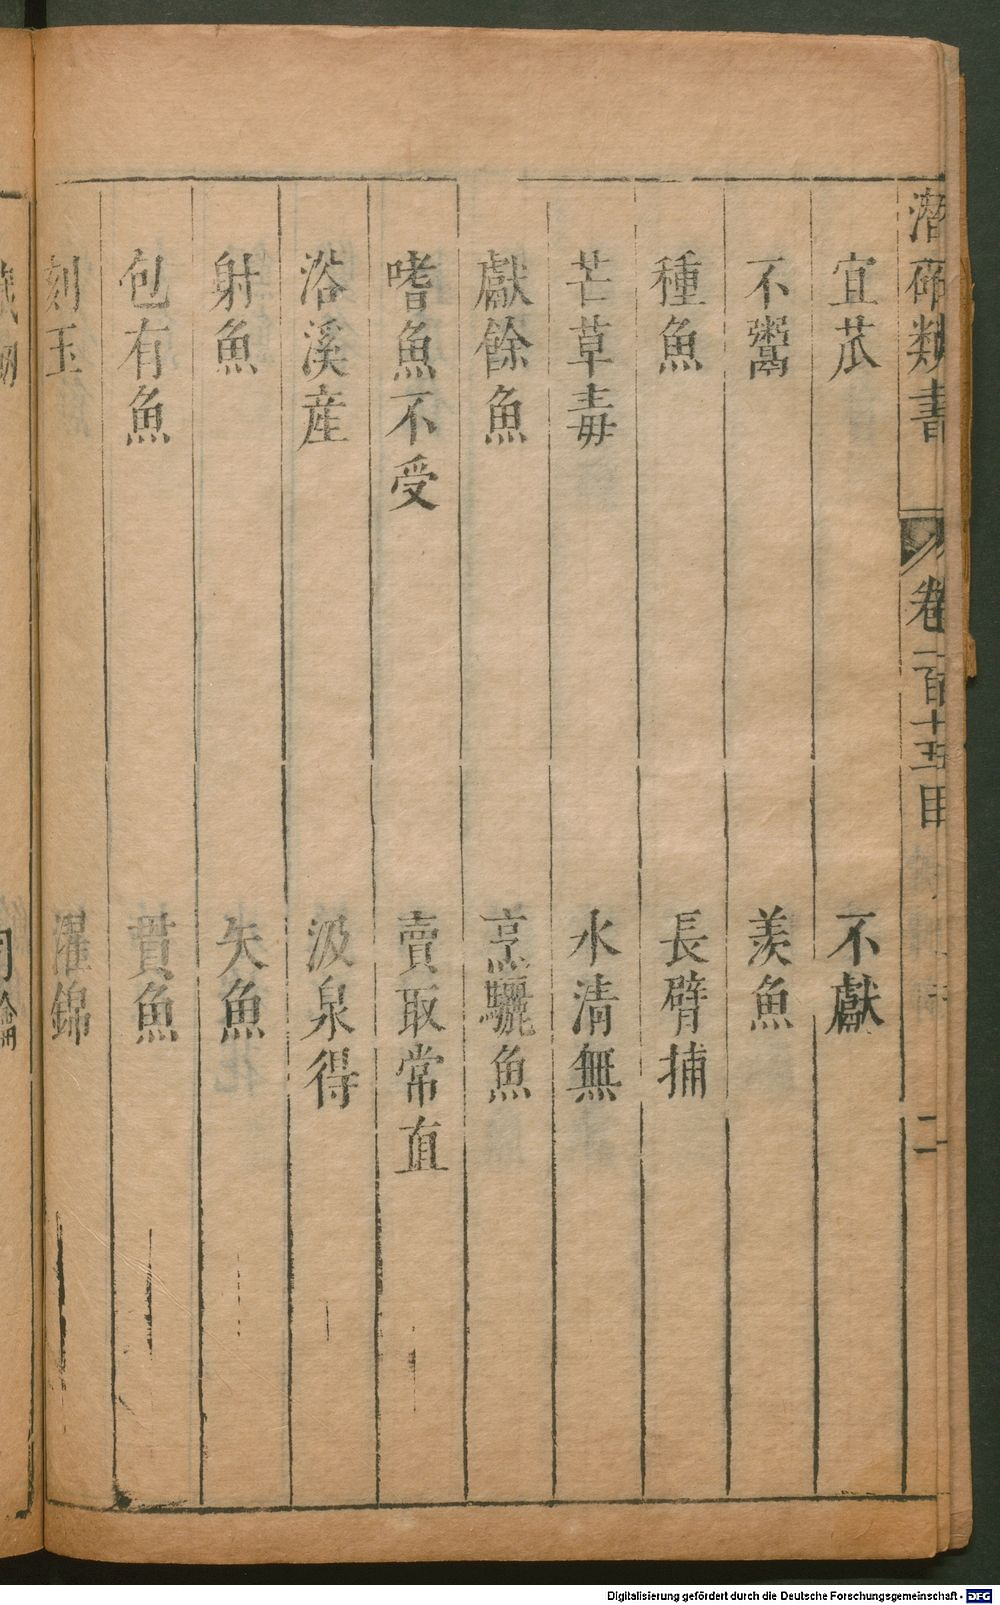 潛確類書 卷一百十五目 二
宜苽 不獻
不鬻 羨魚
種魚 長臂捕
芒草毒 水清無
獻餘魚 烹驪魚
嗜魚不受 賣取常直
浴溪産 汲泉得
射魚 矢魚
包有魚 貫魚
刻玉 濯錦
Digitalisierung gefördert durch die Deutsche Forschungsgemeinschaft - DFG